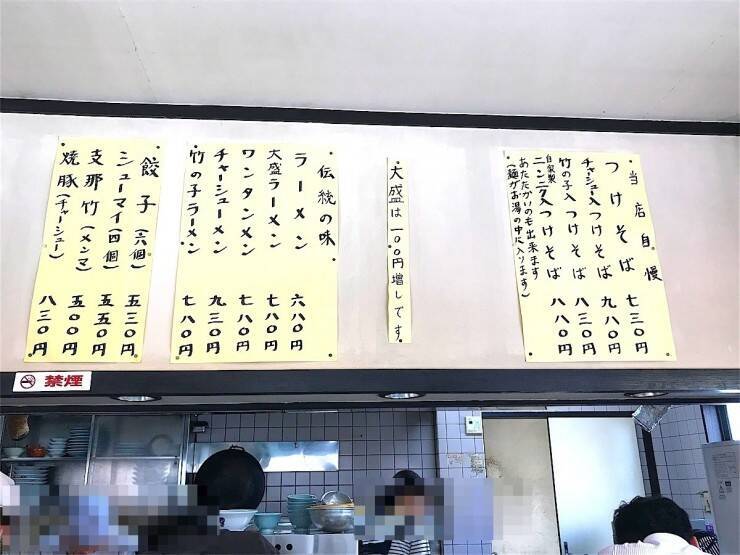 当店自慢
つけそば 七三〇円
チャーシュー入つけそば 九八〇円
竹の子入つけそば 八三〇円
自家製ニンニク入つけそば 八八〇円
あたたかいのも出来ます
(麺がお湯の中に入ります)
大盛は一〇〇円増しです。
伝統の味
ラーメン 六八〇円
大盛ラーメン 七八〇円
ワンタンメン 七八〇円
チャーシューメン 九三〇円
竹の子ラーメン 七八〇円
餃子(六個) 五三〇円
シューマイ(四個) 五五〇円
支那竹(メンマ) 五〇〇円
焼豚(チャーシュー) 八三〇円
禁煙